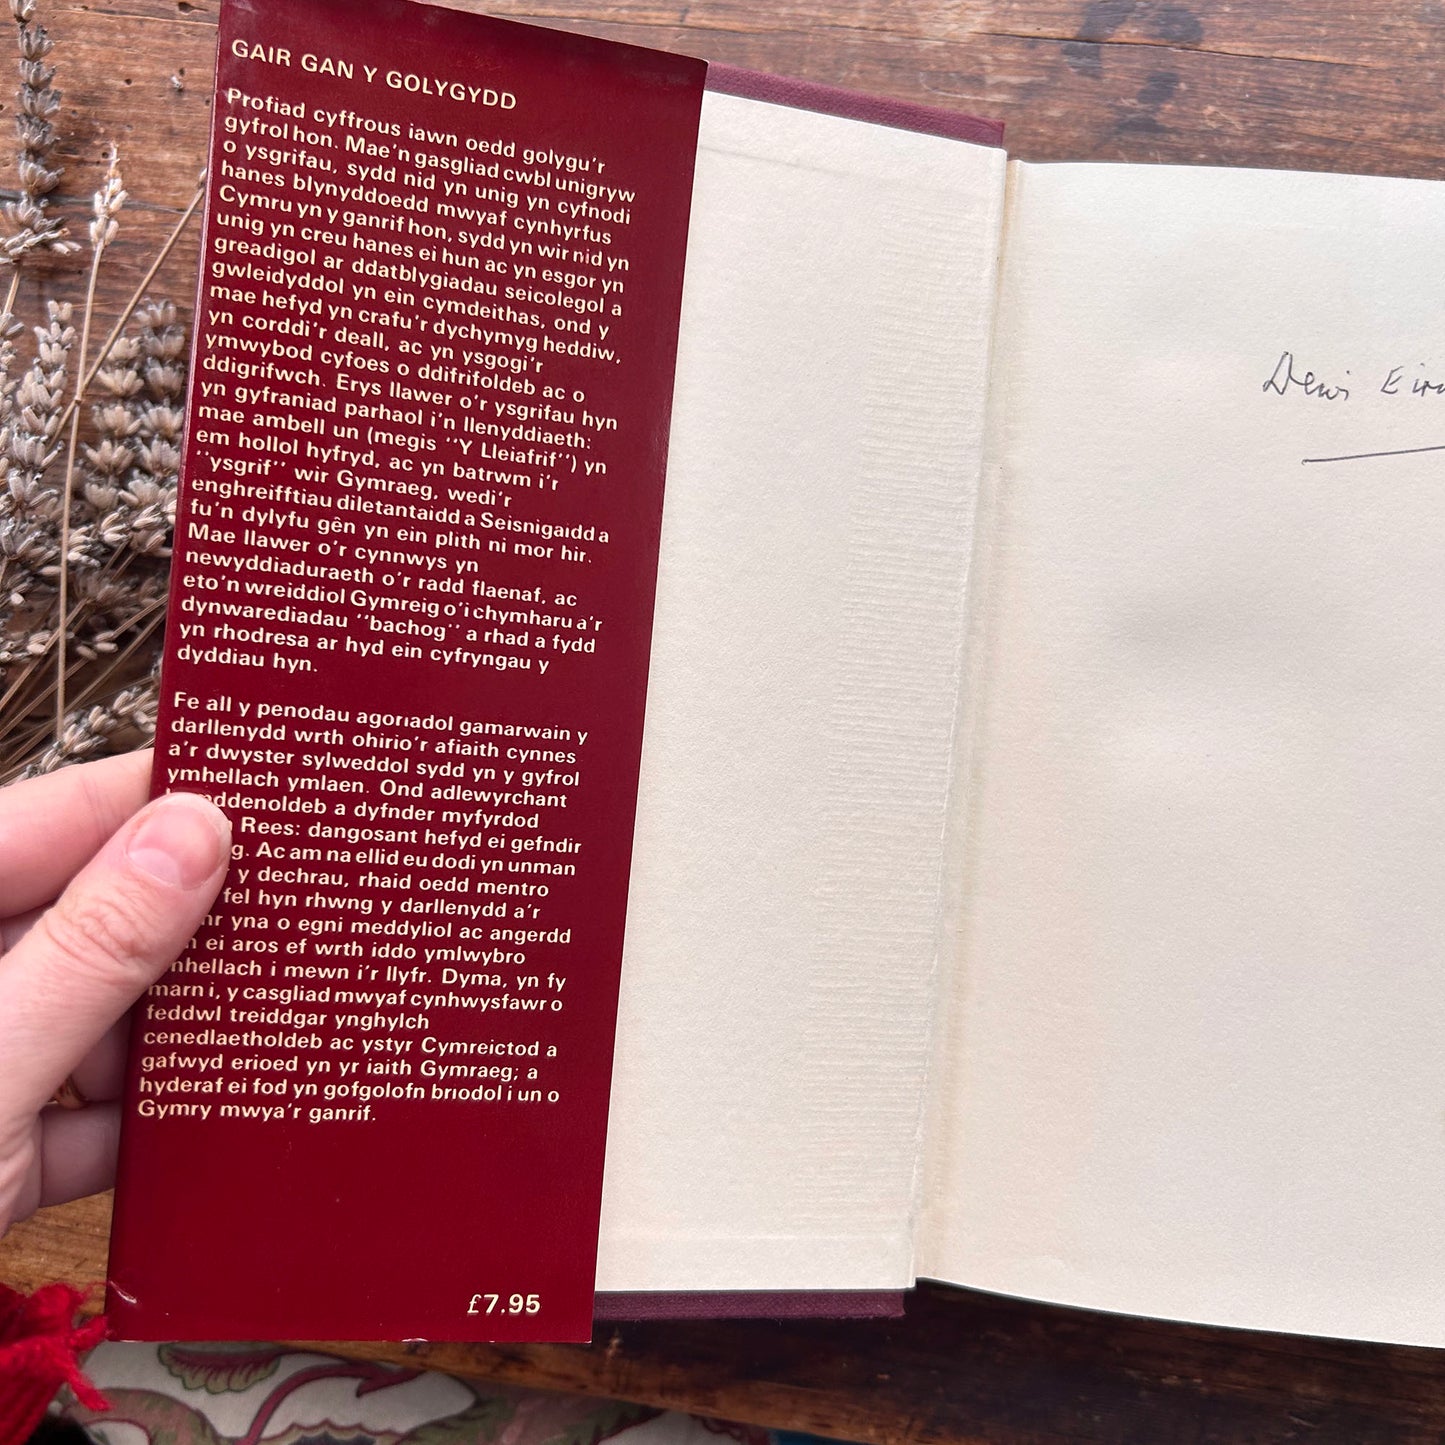 GAIR GAN Y GOLYGYDD
Profiad cyffrous iawn oedd golygu'r
gyfrol hon. Mae'n gasgliad cwbl unigryw
o ysgrifau, sydd nid yn unig yn cyfnodi
hanes blynyddoedd mwyaf cynhyrfus
Cymru yn y ganrif hon, sydd yn wir nid yn
unig yn creu hanes ei hun ac yn esgor yn
greadigol ar ddatblygiadau seicolegol a
gwleidyddol yn ein cymdeithas, ond y
mae hefyd yn crafu'r dychymyg heddiw,
yn corddi'r deall, ac yn ysgogi'r
ymwybod cyfoes o ddifrifoldeb ac o
ddigrifwch. Erys llawer o'r ysgrifau hyn
yn gyfraniad parhaol i'n llenyddiaeth:
mae ambell un (megis "Y Lleiafrif") yn
em hollol hyfryd, ac yn batrwm i'r
"ysgrif" wir Gymraeg, wedi'r
enghreifftiau diletantaidd a Seisnigaidd a
fu'n dylyfu gên yn ein plith ni mor hir.
Mae llawer o'r cynnwys yn
newyddiaduraeth o'r radd flaenaf, ac
eto'n wreiddiol Gymreig o'i chymharu a'r
dynwarediadau "bachog" a rhad a fydd
yn rhodresa ar hyd ein cyfryngau y
dyddiau hyn.
Fe all y penodau agoriadol gamarwain y
darllenydd wrth ohirio'r afiaith cynnes
a'r dwyster sylweddol sydd yn y gyfrol
ymhellach ymlaen. Ond adlewyrchant
a dyfnder myfyrdod
Rees: dangosant hefyd ei gefndir
Ac am na ellid eu dodi yn unman
y dechrau, rhaid oedd mentro
fel hyn rhwng y darllenydd a'r
yna o egni meddyliol ac angerdd
ei aros ef wrth iddo ymlwybro
i mewn i'r llyfr. Dyma, yn fy
marn i, y casgliad mwyaf cynhwysfawr o
feddwl treiddgar ynghylch
cenedlaetholdeb ac ystyr Cymreictod a
gafwyd erioed yn yr iaith Gymraeg; a
hyderaf ei fod yn gofgolofn briodol i un o
Gymry mwya'r ganrif.
£7.95
Dewi